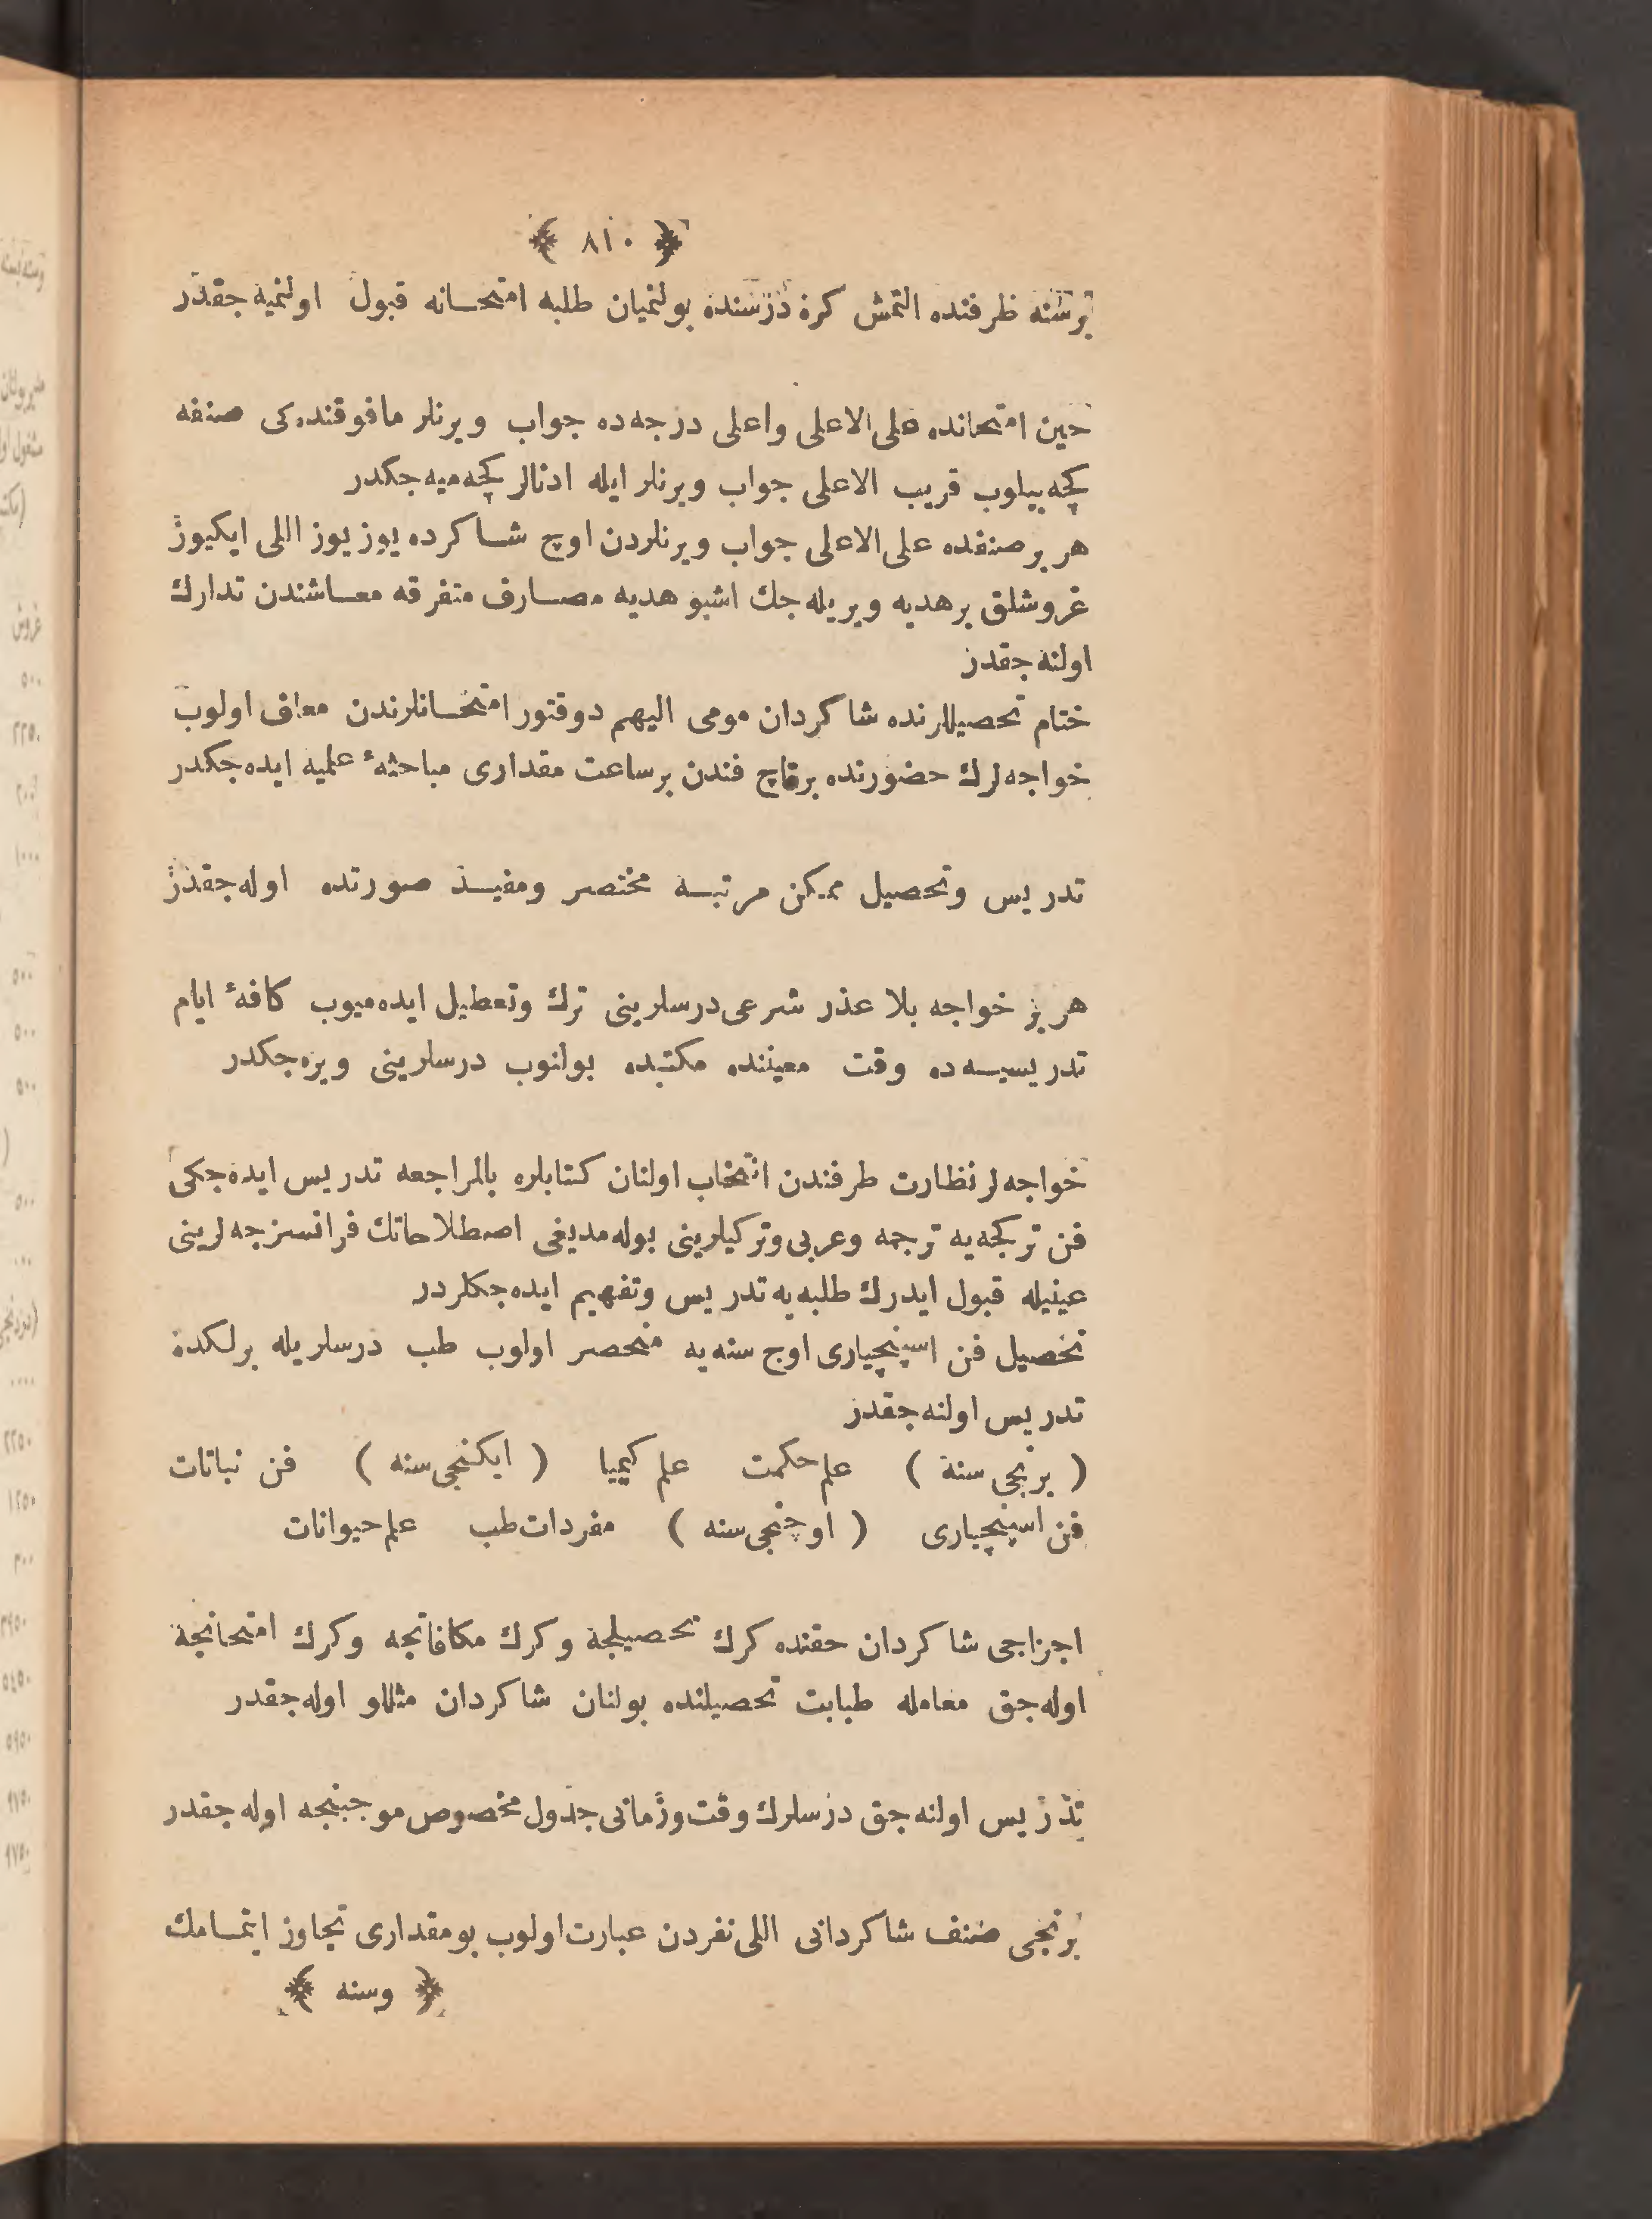 ﴿ ٨١٠ ﴾
برسنه ظرفنده التمش كره درسنده بولنميان طلبه امتحانه قبول اولنميه جقدر
حين امتحانده على الاعلى واعلى درجه ده جواب ويرنلر مافوقنده كى صنفه
كچه بيلوب قريب الاعلى جواب ويرنلر ايله ادنالر كچه ميه جكدر
هر بر صنفده على الاعلى جواب ويرنلردن اوچ شاكرده يوز يوز اللى ايكيوز
غروشلق بر هديه ويريله جك اشبو هديه مصارف متفرقه معاشندن تدارك
اولنه جقدر
ختام تحصيللرنده شاكردان مومى اليهم دوقتور امتحانلرندن معاف اولوب
خواجه لرك حضورنده برقاچ فندن برساعت مقدارى مباحثهٔ علميه ايده جكدر
تدريس وتحصيل ممكن مرتبه مختصر ومفيد صورتده اوله جقدر
هر بر خواجه بلا عذر شرعى درسلرينى ترك وتعطيل ايده ميوب كافهٔ ايام
تدريسيه ده وقت معيننده مكتبده بولنوب درسلرينى ويره جكدر
خواجه لر نظارت طرفندن انتخاب اولنان كتابلره بالمراجعه تدريس ايده جكى
فن تركجه يه ترجمه وعربى وتركيلرينى بوله مديغى اصطلاحاتك فرانسزجه لرينى
عينيله قبول ايدرك طلبه يه تدريس وتفهيم ايده جكلردر
تحصيل فن اسپنچيارى اوج سنه يه منحصر اولوب طب درسلريله برلكده
تدريس اولنه جقدر
( برنجى سنه ) علم حكمت علم كيميا ( ايكنجى سنه ) فن نباتات
فن اسپنچيارى ( اوچنجى سنه ) مفردات طب علم حيوانات
اجزاجى شاكردان حقنده كرك تحصيلجه وكرك مكافاتجه وكرك امتحانجه
اوله جق معامله طبابت تحصيلنده بولنان شاكردان مثللو اوله جقدر
تدريس اولنه جق درسلرك وقت وزمانى جدول مخصوص موجبنجه اوله جقدر
برنجى صنف شاكردانى اللى نفردن عبارت اولوب بومقدارى تجاوز ايتمامك
﴿ وسنه ﴾